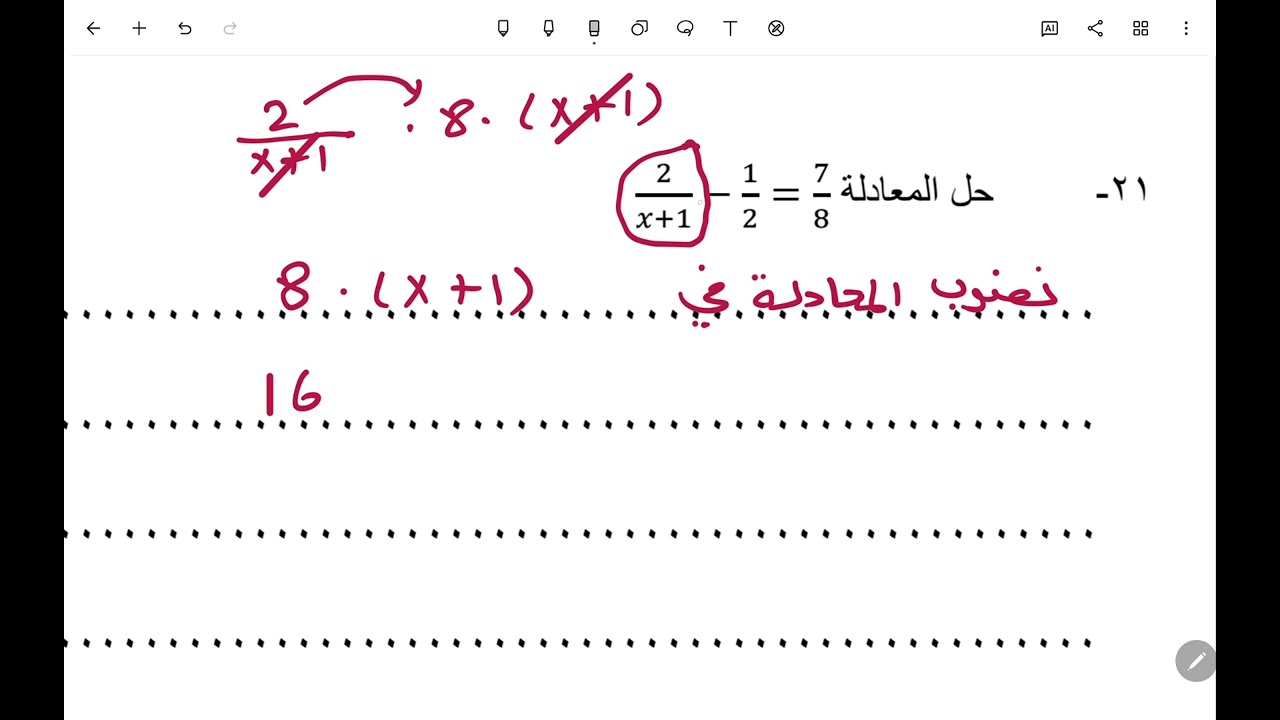 2/x+1 · 8 · (x+1)
٢١- حل المعادلة 2/x+1 − 1/2 = 7/8
نضرب المعادلة في 8 · (x+1)
16